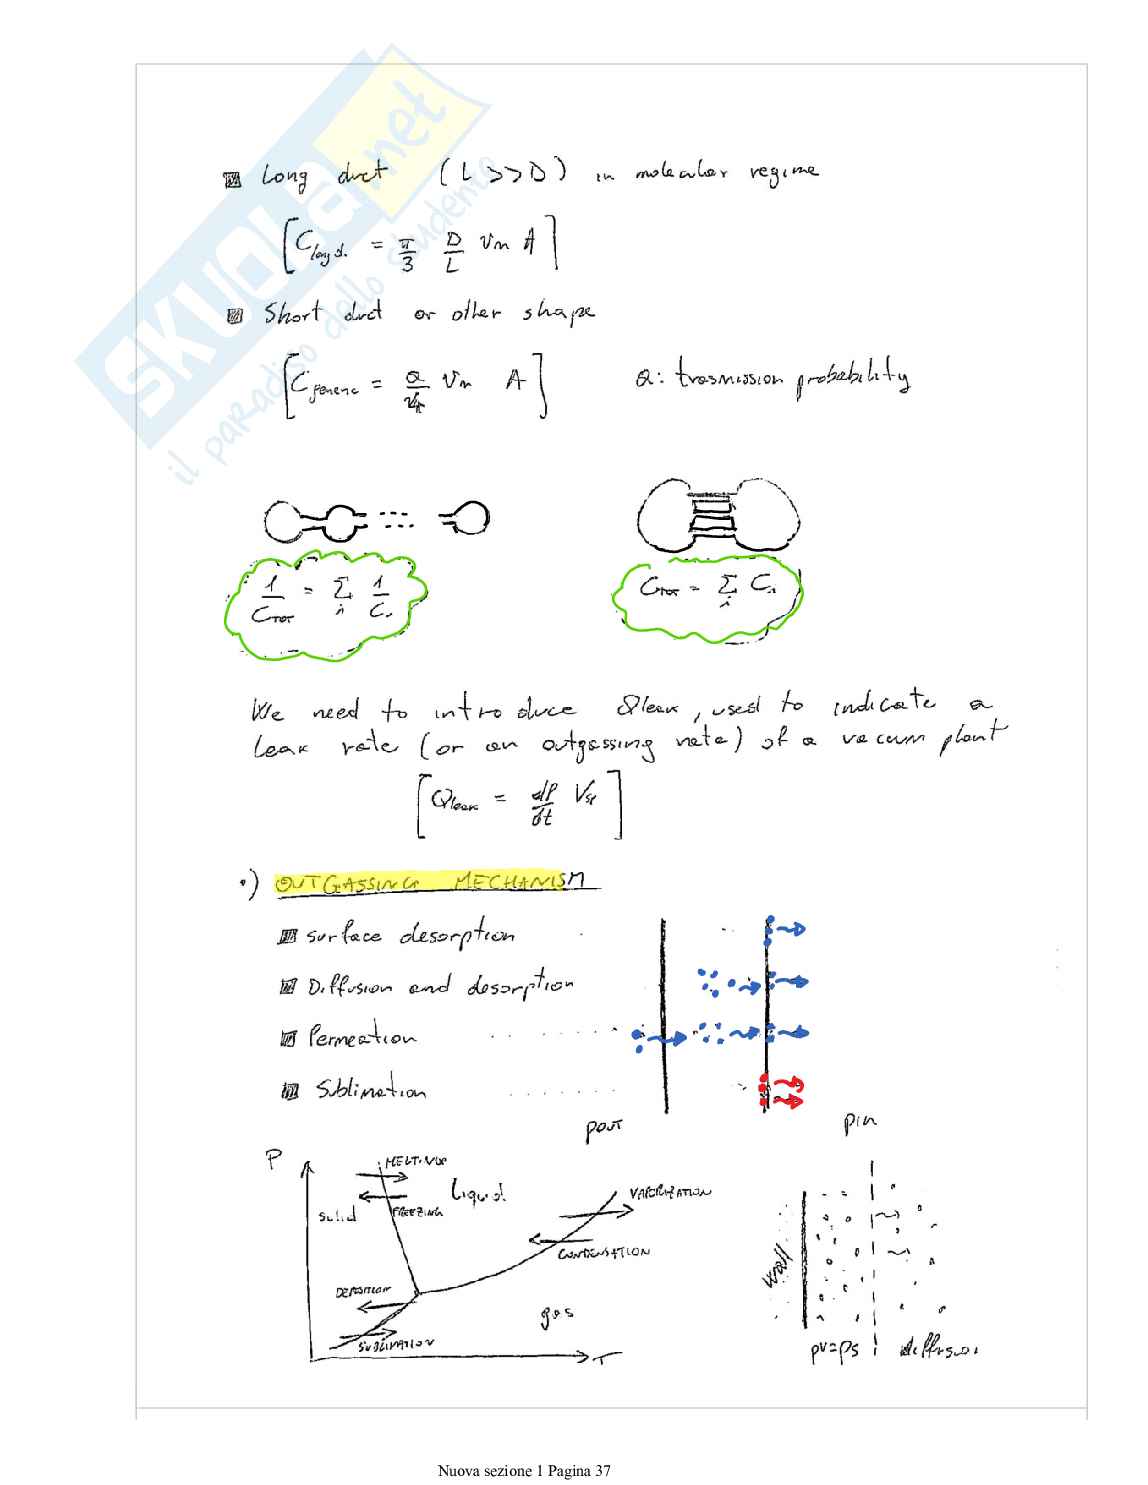 SKUOLA.net
il paradiso dello studente
Long duct (L >> D) in molecular regime
[C long d. = π/3 D/L vm A]
Short duct or other shape
[C generic = a/4 vm A] a: trasmission probability
1/C_TOT = Σ_i 1/C_i
C_TOT = Σ_i C_i
We need to introduce Qleak, used to indicate a
leak rate (or an outgassing rate) of a vacuum plant
[Qleak = dP/dt Vsp]
•) OUTGASSING MECHANISM
Surface desorption
Diffusion and desorption
Permeation
Sublimation
pout
pin
P
MELTING
Liquid
VAPORIZATION
solid
FREEZING
CONDENSATION
wall
DEPOSITION
gas
SUBLIMATION
pv=ps
diffusion
T
Nuova sezione 1 Pagina 37